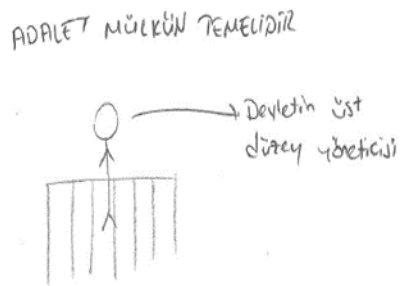 ADALET MÜLKÜN TEMELİDİR
Devletin üst
düzey yöneticisi